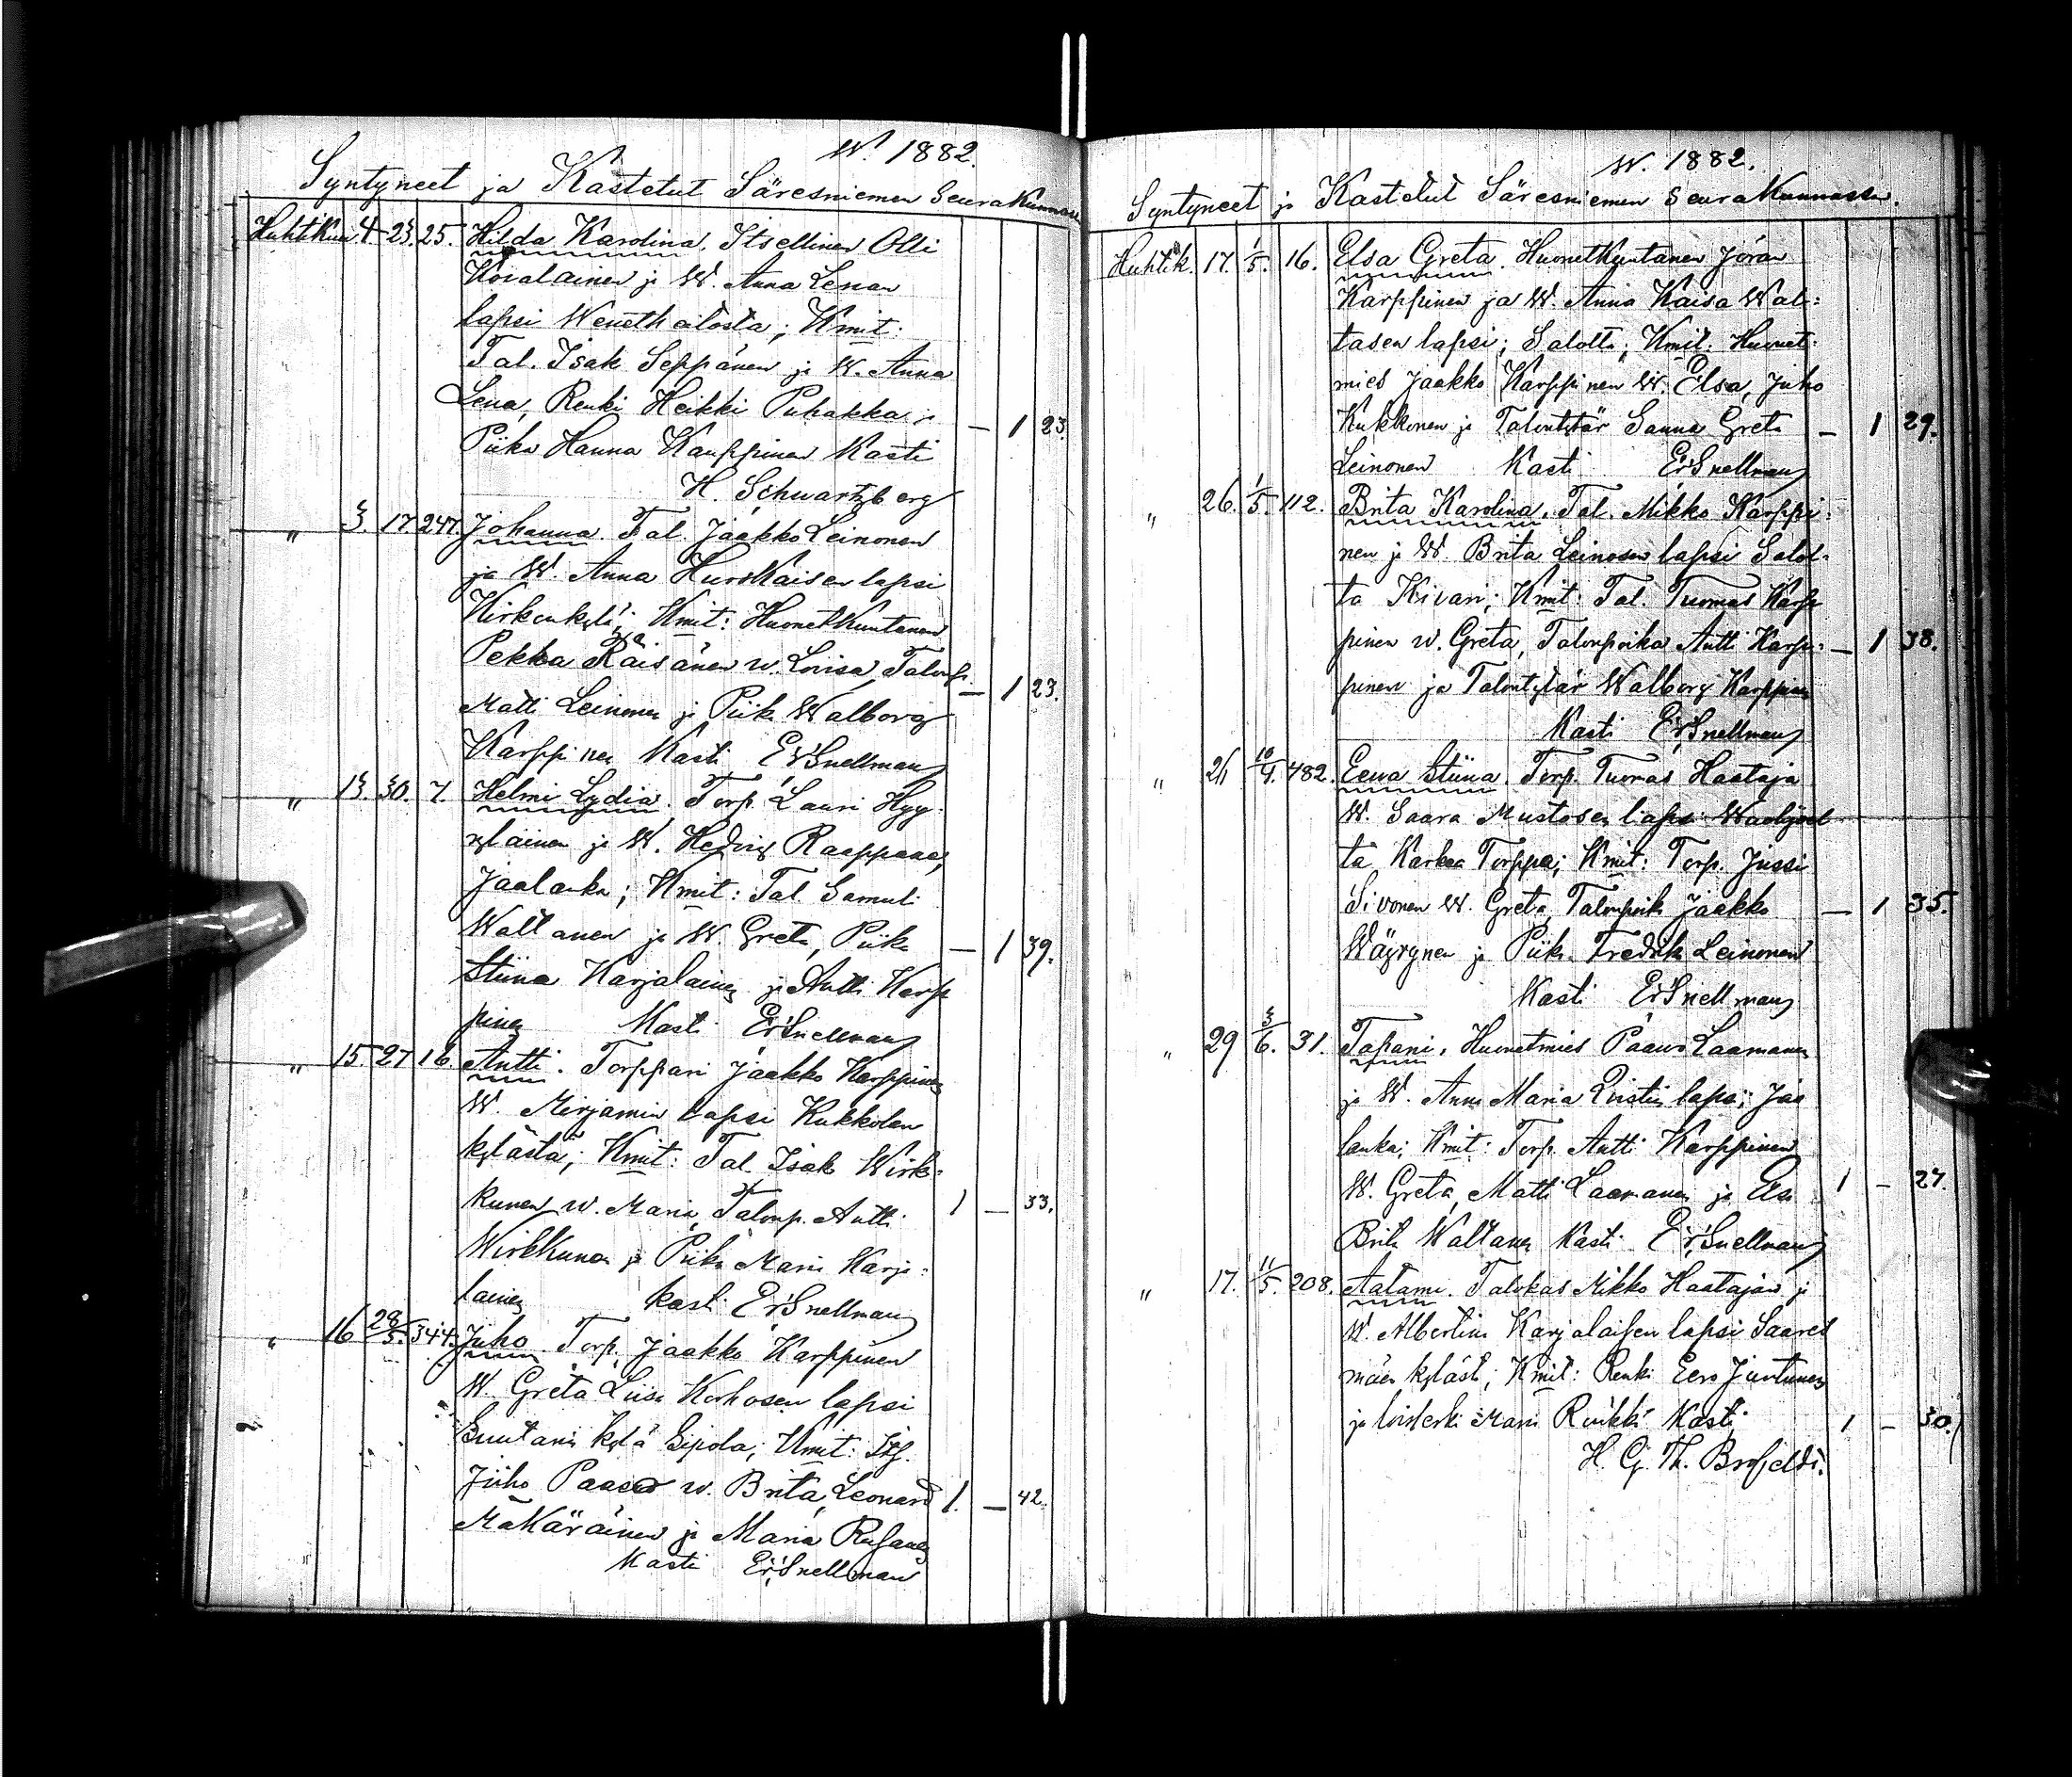 W. 1882.
Syntyneet ja Kastetut Säresniemen Seurakunnassa
Huhtikuu 4 23. 25. Hilda Karolina. Itsellinen Olli
Kovalainen ja W. Anna Leenan
lapsi Weneth aitosta; Kmit:
Tal. Isak Seppänen ja W. Anna
Lena, Renki Heikki Puhakka ja — 1 23.
Piika Hanna Kauppinen Kasti
H. Schwartzberg
" 3. 17. 247. Johanna. Tal. Jaakko Leinonen
ja W. Anna Hurskaisen lapsi
Kirkonkylä; Kmit: Huonetkuntanen
Pekka Räisänen w. Lovisa, Talonp. — 1 23.
Matti Leinonen ja Piika Walborg
Karppinen Kasti Er. Snellman
" 13. 30. 7. Helmi Lydia. Torp. Lauri Hyy-
ryläinen ja W. Hedvig Raappana,
Jaalanka; Kmit: Tal. Samuli
Waltanen ja W. Greta, Piika — 1 39.
Stiina Karjalainen ja Antti Karp
pinen Kasti Er. Snellman
" 15. 27 16. Antti. Torppari Jaakko Karppinen
W. Mirjamin lapsi Kukkolan
kylästä; Kmit: Tal. Isak Wirk-
kunen w. Maria, Talonp. Antti 1 — 33.
Wirkkunen ja Piika Maria Karja-
lainen Kasti Er. Snellman
" 16 28/5. 344. Juho. Torp. Jaakko Karppinen
W. Greta Liisa Korhosen lapsi
kylä Sipola; Kmit: Its.
Juho Paaso w. Brita, Leonard 1. — 42.
Mäkäräinen ja Maria Rusanen
Kasti Er. Snellman
W. 1882.
Syntyneet ja Kastetut Säresniemen Seurakunnassa.
Huhtik. 17. 1/5. 16. Elsa Greta. Huonetkuntanen Jöran
Karppinen ja W. Anna Kaisa Wal-
tasen lapsi; Salolta; Kmit: Huonet-
mies Jaakko Karppinen W. Elsa, Juho
Kukkonen ja Talontytär Sanna Greta — 1 29.
Leinonen Kasti Er. Snellman
" 26. 1/5. 112. Brita Karolina. Tal. Mikko Karppi-
nen ja W. Brita Leinosen lapsi Salol-
ta Kivari; Kmit: Tal. Tuomas Karp
pinen w. Greta, Talonpoika Antti Karp- — 1 38.
pinen ja Talontytär Walborg Karppinen
Kasti Er. Snellman
" 21 10/4. 482. Eeva Stiina. Torp. Tuomas Haataja
W. Saara Mustosen lapsi
ta Karkea Torppa; Kmit: Torp. Jussi
Sivonen W. Greta, Talonpoika Jaakko — 1 35.
Wäyrynen ja Piika Fredrika Leinonen
Kasti Er. Snellman
" 29 3/6. 31. Tapani. Huonetmies Paavo Laamanen
ja W. Anna Maria lapsi; Jaa
lanka; Kmit: Torp. Antti Karppinen
W. Greta, Matti Laamanen ja Elsa 1 — 27.
Brita Waltanen Kasti Er. Snellman
" 17. 11/5. 208. Aatami. Talokas Mikko Haatajan ja
W. Albertina Karjalaisen lapsi Saares
mäen kyläst; Kmit: Renki Eero Juntunen
ja loisleski Maria Kasti 1 — 30.
H. G. Th. Brofeldt.